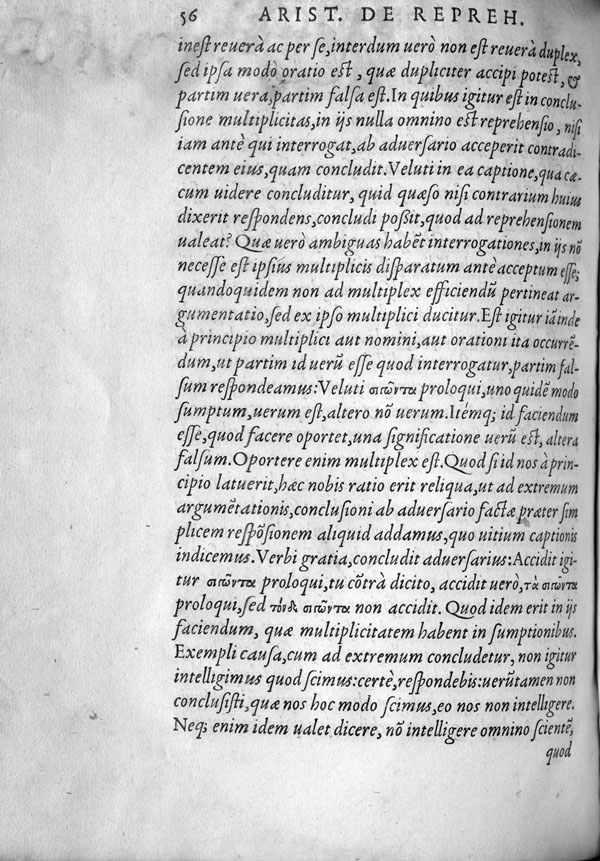 56 ARIST. DE REPREH.
inest reuerà ac per se, interdum uerò non est reuerà duplex,
sed ipsa modò oratio est, quæ dupliciter accipi potest, &
partim uera, partim falsa est. In quibus igitur est in conclu-
sione multiplicitas, in ijs nulla omnino est reprehensio, nisi
iam antè qui interrogat, ab aduersario acceperit contradi-
centem eius, quam concludit. Veluti in ea captione, qua cæ-
cum uidere concluditur, quid quæso nisi contrarium huius
dixerit respondens, concludi poßit, quod ad reprehensionem
ualeat? Quæ uerò ambiguas habẽt interrogationes, in ijs nõ
necesse est ipsius multiplicis disparatum antè acceptum esse;
quandoquidem non ad multiplex efficiendũ pertineat ar-
gumentatio, sed ex ipso multiplici ducitur. Est igitur iã inde
à principio multiplici aut nomini, aut orationi ita occurrẽ-
dum, ut partim id uerũ esse quod interrogatur, partim fal-
sum respondeamus: Veluti σιπῶντα proloqui, uno quidẽ modo
sumptum, uerum est, altero nõ uerum. Itémq; id faciendum
esse, quod facere oportet, una significatione uerũ est, altera
falsum. Oportere enim multiplex est. Quod si id nos à prin-
cipio latuerit, hæc nobis ratio erit reliqua, ut ad extremum
argumẽtationis, conclusioni ab aduersario factæ præter sim
plicem respõsionem aliquid addamus, quo uitium captionis
indicemus. Verbi gratia, concludit aduersarius: Accidit igi-
tur σιπῶντα proloqui, tu cõtrà dicito, accidit uerò, τὰ σιπῶντα
proloqui, sed τόνδε σιπῶντα non accidit. Quod idem erit in ijs
faciendum, quæ multiplicitatem habent in sumptionibus.
Exempli causa, cum ad extremum concludetur, non igitur
intelligimus quod scimus: certè, respondebis: uerũtamen non
conclusisti, quæ nos hoc modo scimus, eo nos non intelligere.
Neq; enim idem ualet dicere, nõ intelligere omnino scientẽ,
quod